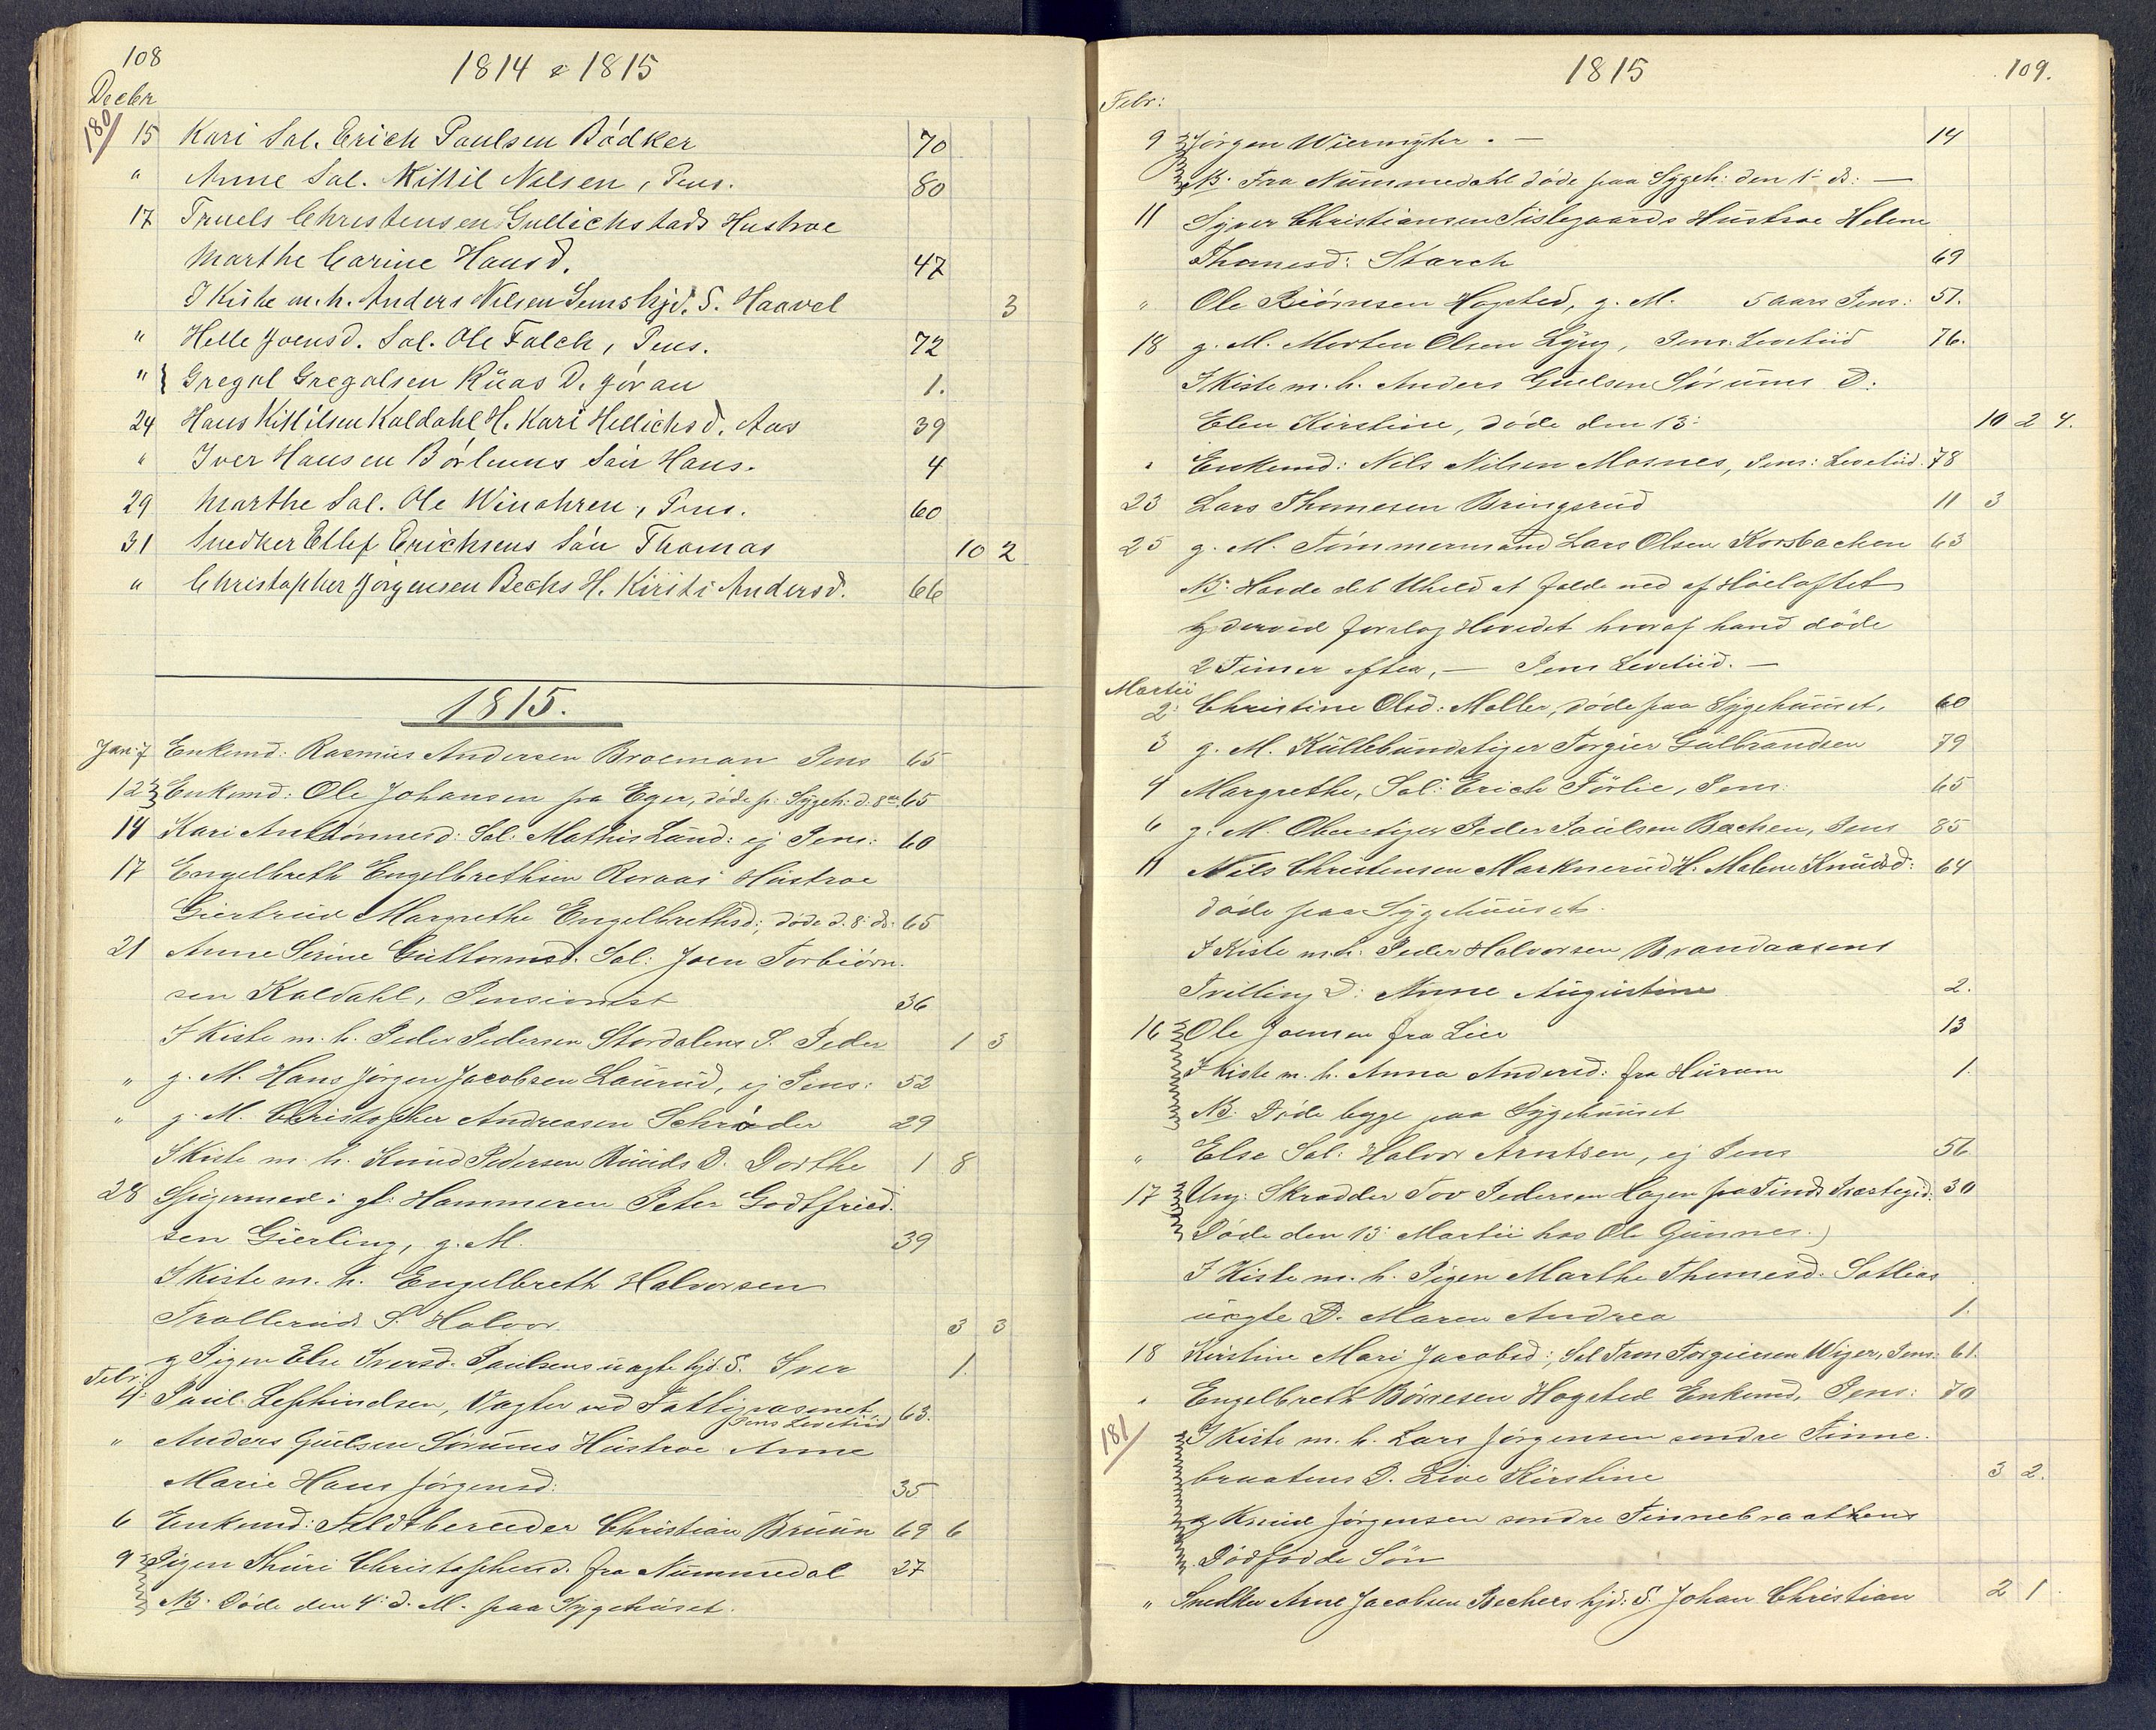 108
1814 & 1815
Decbr
180/ 15 Kari Sal. Erich Paulsen Bödker 70
" Anne Sal. Kittil Nelsen, Pens. 80
17 Truels Christensen Gullichstads Hustroe
Marthe Carine Hansd. 47
I Kiste m. h. Anders Nilsen Semshjd. S. Haavel 3
" Helle Joensd. Sal. Ole Falch, Pens. 72
" Gregal Gregalsen Rüas D. Jöran 1.
24 Hans Kittilsen Kaldahl H. Kari Hellichsd. Aas 39
" Iver Hansen Börlums Sön Hans. 4
29 Marthe Sal. Ole Winohren, Pens. 60
31 Snedker Ellef Erichsens Sön Thomas 10 2
" Christopher Jörgensen Bechs H. Kirsti Andersd. 66
1815.
Jan: 7 Enkemd: Rasmus Andersen Braeman Pens 65
12 Enkemd: Ole Johansen fra Eger, döde p. Sygeh: d. 8de 65
14 Kari Anthonnesd: Sal: Mathis Lund: ej Pens: 60
17 Engelbreth Engelbrethsen Roraas Hustroe
Giertrud Margrethe Engelbrethsd; döde d. 8: ds: 65
21 Anne Serine Guttormsd. Sal: Joen Torbiörn.
sen Kaldahl, Pensionist 36
I Kiste m. h. Peder Pedersen Stordalens S. Peder 1 3
" g. M. Hans Jörgen Jacobsen Laurud, ej Pens: 52
" g. M. Christopher Andreasen Schröder 29
I Kiste m. h. Knud Pedersen Ruuds D. Dorthe 1 8
28 Spigermed: gl: Hammeren Peter Godtfried.
sen Gierling, g. M. 39
I Kiste m. h. Engelbreth Halvorsen
Trallerud S. Halvor 3 3
g Pigen Else Iversd. Paulsens uægte hjd. S. Iver 1.
Febr:
4: Paul Lephindsen, Vagter ved Fattigvæsnet 63.
Pens Levetiid
" Anders Guelsen Sörums Hustroe Anne
Marie Hans Jörgensd: 35
6 Enkemd: Feldtbereder Christian Bruun 69 6
9 Pigen Thuri Christophersd. fra Nummedal 27
NB. Döde den 4: d. M. paa Sygehuset.
1815
109.
Febr:
9 Jörgen Wiermyhr. — 14
NB. Fra Nummedahl döde paa Sygeh: den 1- ds: —
11 Syver Christiansen Tislegaards Hustroe Helene
Thomesd: Starch 69
" Ole Biörnsen Hogsted, g. M. 5 aars Pens: 51.
18 g. M. Morten Olsen Lÿng, Pens. Levetiid 76.
I Kiste m. h. Anders Guelsen Sörums D:
Elen Kirstine, döde den 13: 10 2 4.
" Enkemd: Nils Nilsen Mosnes, Pens: Levetiid. 78
23 Lars Thomesen Bringsrud 11 3
25 g. M. Tömmermand Lars Olsen Korsbacken 63
NB: Havde det Uheld at falde ned af Höeloftet
og derved forslog Hovedet hvoraf hand döde
2 Timer efter, — Pens Levetiid. —
Martii
2: Christine Olsd: Moller, döde paa Sygehuuset. 60
3 g. M. Kullebundstiger Torgier Gulbrandsen 79
4 Margrethe, Sal: Erich Förlie, Pens: 65
6 g. M. Oberstiger Peder Paulsen Bachen, Pens 85
11 Nils Christensen Marknerud H. Malene Knudsd: 64
döde paa Sygehuuset.
I Kiste m.h. Peder Halvorsen Brandaasens
Tvilling D: Anne Augustine 2.
16 Ole Joensen fra Lier 13
I Kiste m. h. Anna Andersd: fra Hurum 1.
NB: Döde begge paa Sygehuuset
" Else Sal: Halvor Arntsen, ej Pens 56
17 Ung: Skrædder Tov Pedersen Hagen fra Tinds Præstegjd. 30
Döde den 13: Martii hos Ole Gunnes.)
I Kiste m. h. Pigen Marthe Thomesd. Sotlias
uægte D. Maren Andrea 1.
18 Kirstine Mari Jacobsd:, Sal Tron Torgiersen Wiger, Pens: 61.
" Engelbreth Börresen Hogsted Enkemd, Pens: 70
181/ I Kiste m. h. Lars Jörgensen söndre Tinne.
braatens D. Live Kirstine 3 2.
og Knud Jörgensen söndre Tinnebraathens
Dödfödde Sön
" Snedker Arne Jacobsen Bechers hjd: S. Johan Christian 2 1